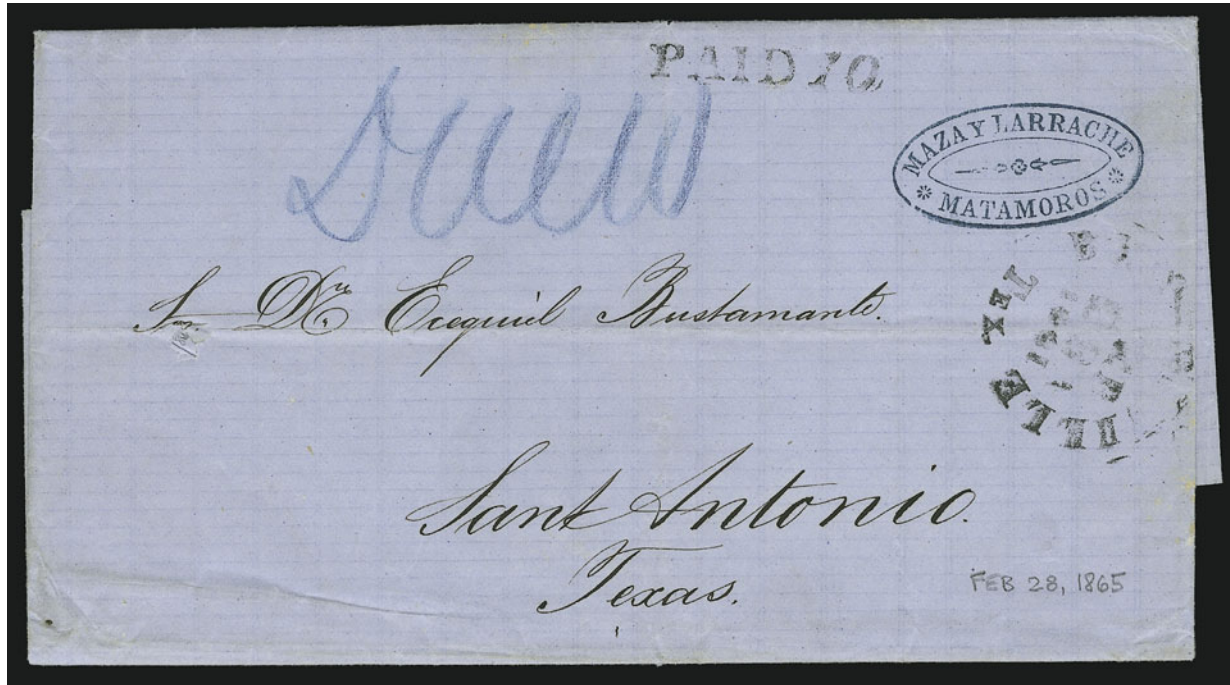 PAID 10
MAZA Y LARRACHE
MATAMOROS
Sr Dn. Ecequiel Bustamante.
Sant Antonio.
Texas.
TEX
FEB 28, 1865